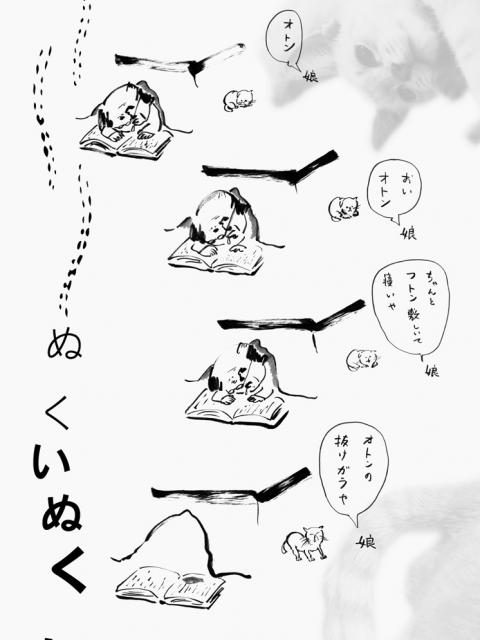 オトン
娘
おい
オトン
娘
ちゃんと
フトン敷しいて
娘
オトンの
抜けガラや
娘
ぬくいぬく